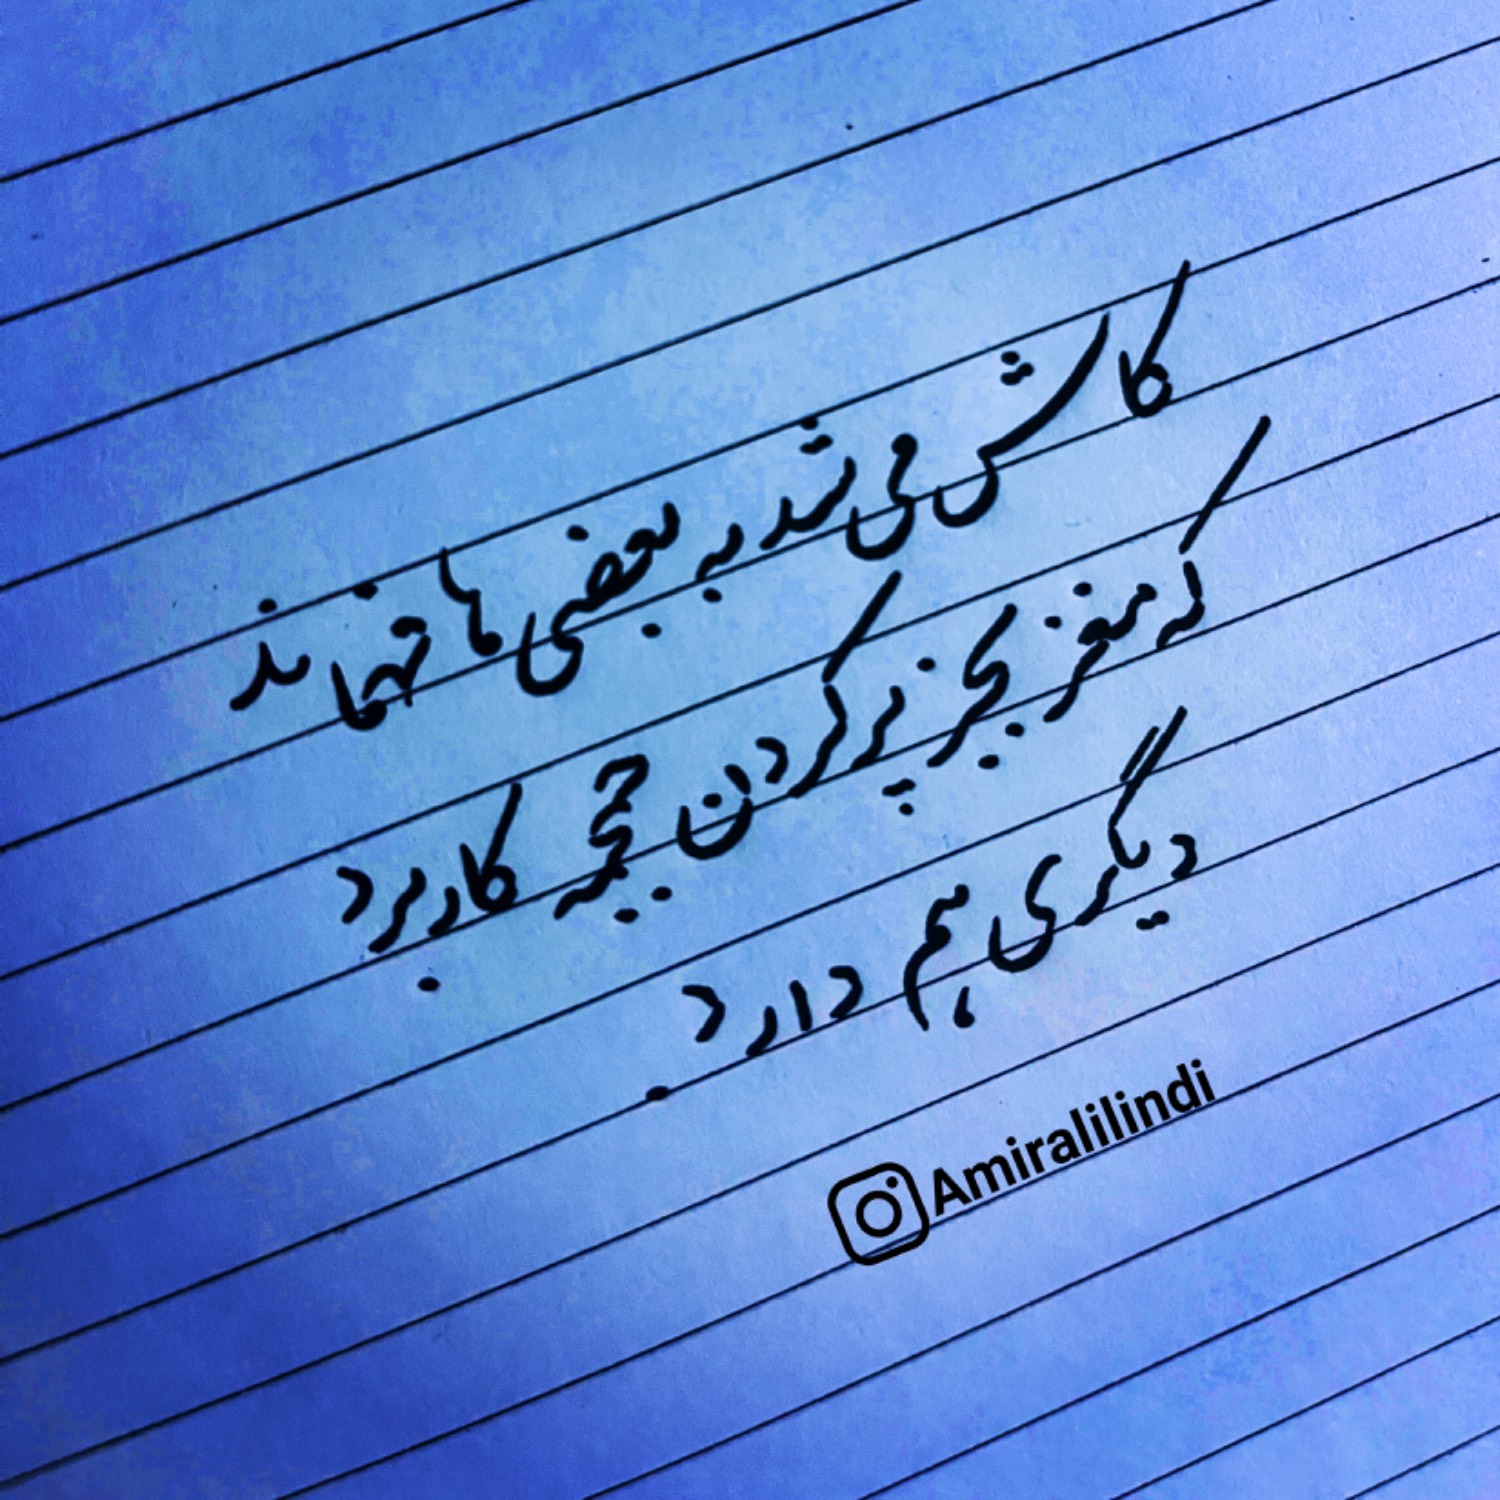 کاش می شد به بعضی ها فهماند
که مغز بجز پر کردن جمجمه کاربرد
دیگری هم دارد.
Amiralilindi